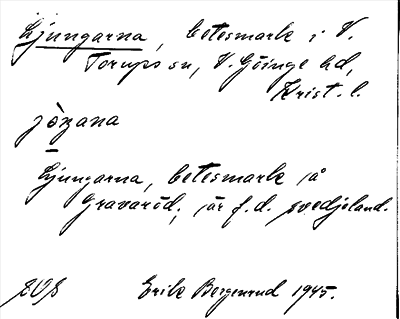 Ljungarna, betesmark i V.
Torups sn, V. Göinge hd,
Krist. l.
Ljungarna, betesmark på
Gravaröd, är f.d. svedjeland.
Erik Bergenrud 1945.